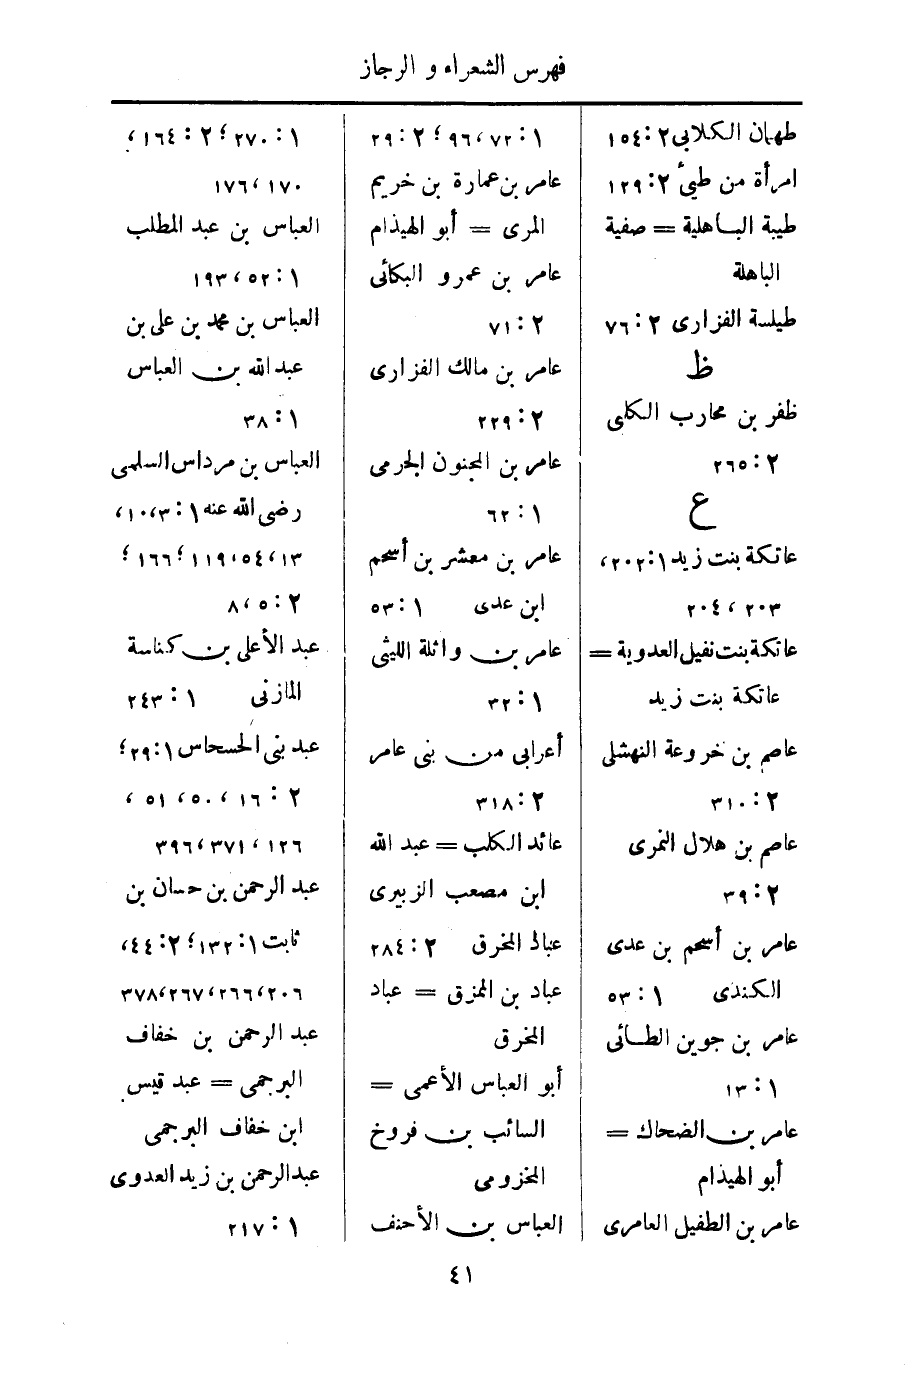 فهرس الشعراء و الرجاز
طهمان الكلابى ٢ : ١٥٤
امرأة من طيئ ٢ : ١٢٩
طيبة الباهلية = صفية
الباهلة
طيلسة الفزارى ٢ : ٧٦
ظ
ظفر بن محارب الكلبى
٢ : ٢٦٥
ع
عاتكة بنت زيد ١ : ٢٠٢،
٢٠٣ ، ٢٠٤
عاتكة بنت نفيل العدوية =
عاتكة بنت زيد
عاصم بن خروعة النهشلى
٢ : ٣١٠
عاصم بن هلال النمرى
٢ : ٣٩
عامر بن أسحم بن عدى
الكندى ١ : ٥٣
عامر بن جوين الطائى
١ : ١٣
عامر بن الضحاك =
أبو الهيذام
عامر بن الطفيل العامرى
١ : ٧٢ ، ٩٦ ؛ ٢ : ٢٩
عامر بن عمارة بن خريم
المرى = أبو الهيذام
عامر بن عمرو البكائى
٢ : ٧١
عامر بن مالك الفزارى
٢ : ٢٢٩
عامر بن المجنون الجرمى
١ : ٦٢
عامر بن معشر بن أسحم
ابن عدى ١ : ٥٣
عامر بن واثلة الليثى
١ : ٣٢
أعرابى من بنى عامر
٢ : ٣١٨
عائد الكلب = عبد الله
ابن مصعب الزبيرى
عباد المخرق ٢ : ٢٨٤
عباد بن الممزق = عباد
المخرق
أبو العباس الأعمى =
السائب بن فروخ
المخزومى
العباس بن الأحنف
١ : ٢٧٠ ؛ ٢ : ١٦٤ ،
١٧٠ ، ١٧٦
العباس بن عبد المطلب
١ : ٥٢ ، ١٩٣
العباس بن محمد بن على بن
عبد الله بن العباس
١ : ٣٨
العباس بن مرداس السلمى
رضى الله عنه ١ : ٣ ، ١٠ ،
١٣ ، ٥٤ ، ١١٩ ؛ ١٦٦ ؛
٢ : ٥ ، ٨
عبد الأعلى بن كناسة
المازنى ١ : ٢٤٣
عبد بنى الحسحاس ١ : ٢٩ ؛
٢ : ١٦ ، ٥٠ ، ٥١ ،
١٢٦ ، ٣٧١ ، ٣٩٦
عبد الرحمن بن حسان بن
ثابت ١ : ١٣٢ ؛ ٢ : ٤٤ ،
٢٠٦ ، ٢٦٦ ، ٢٦٧ ، ٣٧٨
عبد الرحمن بن خفاف
البرجمى = عبد قيس
ابن خفاف البرجمى
عبد الرحمن بن زيد العدوى
١ : ٢١٧
٤١